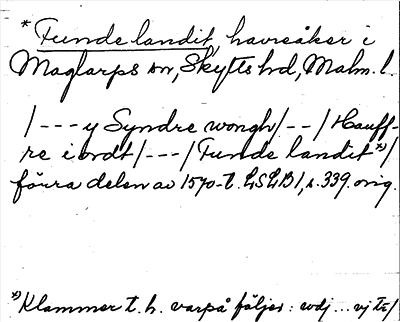 *Funde landit, havreåker i
Maglarps sn, Skytts hd, Malm. l.
/---y Syndre wongh/--/Hauff-
re iordt/---/Funde landit*)/
förra delen av 1570-t. LSLB1, s. 339. orig.
*)Klammer t. h. varpå följer: wdj ... vj te/